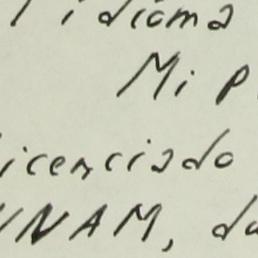 idioma
Mi p
icenciado
UNAM, du